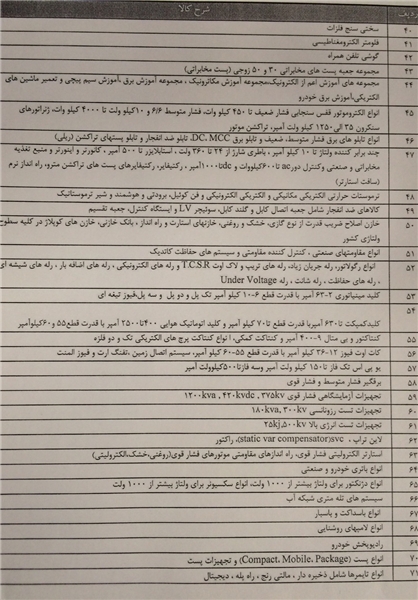 ردیف شرح کالا
۴۰ سختی سنج فلزات
۴۱ فلومتر الکترومغناطیسی
۴۲ گوشی تلفن همراه
۴۳ مجموعه جعبه پست های مخابراتی ۳۰ و ۵۰ زوجی (پست مخابراتی)
۴۴ مجموعه های آموزش اعم از الکترونیک،مجموعه آموزش مکاترونیک ، مجموعه آموزش برق ،آموزش سیم پیچی و تعمیر ماشین های
الکتریکی،آموزش برق خودرو
۴۵ انواع الکتروموتور قفس سنجابی فشار ضعیف تا ۴۵۰ کیلو وات، فشار متوسط ۶/۶ و ۱۰ کیلو ولت تا ۴۰۰۰ کیلو وات، ژنراتورهای
سنکرون ۳۵ الی ۱۲۵۰ کیلو ولت آمپر، تراکشن موتور
۴۶ انواع تابلو های برق فشار متوسط، ضعیف و تابلو برق DC، MCC، تابلو ضد انفجار و تابلو پستهای تراکشن (ریلی)
۴۷ چند برابر کننده ولتاژ تا ۱۰ کیلو آمپر ، باطری شارژ از ۲۴ تا ۳۶۰ ولت ، استابلایزر تا ۵۰۰ آمپر ، کانورتر و اینورتر و منبع تغذیه
مخابراتی و صنعتی وکنترل دور ac تا ۶۰۰کیلووات و dc تا ۱۰۰۰آمپر، رکتیفایر، رکتیفایرهای پست های تراکشن مترو، راه انداز نرم
(سافت استارتر)
۴۸ ترموستات حرارتی الکتریکی مکانیکی و الکتریکی الکترونیکی و فن کوئیل، برودتی و هوشمند و شیر ترموستاتیک
۴۹ کالاهای ضد انفجار شامل جعبه اتصال کابل و گلند کابل، سوئیچر LV و ایستگاه کنترل، جعبه تقسیم
۵۰ خازن اصلاح ضریب قدرت از نوع گازی، خشک و روغنی، خازنهای استارت و راه انداز ، بانک خازنی، خازن های کوپلاژ در کلیه سطوح
ولتاژی کشور
۵۱ انواع مقاومتهای صنعتی ، کنترل کننده مقاومتی و سیستم های حفاظت کاتدیک
۵۲ انواع رگولاتور، رله جریان زیاد، رله های تریپ و لاک اوت T.C.S.R و رله های الکترونیکی ، رله های اضافه بار ، رله های شیشه ای
، رله های حفاظت ، رله شانت ، رله Under Voltage
۵۳ کلید مینیاتوری ۲-۶۳ آمپر با قدرت قطع ۶-۱۰ کیلو آمپر تک پل و دو پل و سه پل،فیوز تیغه ای
۵۴
کلیدکمپکت تا ۶۳۰ آمپربا قدرت قطع تا ۷۰ کیلو آمپر و کلید اتوماتیک هوایی ۴۰۰تا ۲۵۰۰ آمپر با قدرت قطع ۵۵ و ۶۰کیلوآمپر
۵۵ کنتاکتور و بی متال ۹-۴۰۰ آمپر و کنتاکت کمکی، انواع کنتاکت پرچ های الکتریکی تک و دو فلزه
۵۶ کات اوت فیوز ۱۲-۳۶ کیلو آمپر با قدرت قطع ۵۵-۶۰ کیلو آمپر، سیستم اتصال زمین ،تفنگ ارت و فیوز المنت
۵۷ یو پی اس تک فاز تا ۱۵۰ کیلو ولت آمپر وسه فاز تا ۵۰۰کیلوولت آمپر
۵۸ برقگیر فشار متوسط و فشار قوی
۵۹ تجهیزات آزمایشگاهی فشار قوی 1200kva , 420kvdc , 375kv
۶۰ تجهیزات تست رزونانسی 180kva, 300kv
۶۱ تجهیزات تست انرژی بالا 25kj,500kv
۶۲ لاین تراپ ، svc(static var compensator)، راکتور
۶۳ استارتر الکترولیتی فشار قوی، راه اندازهای مقاومتی موتورهای فشار قوی(روغنی،خشک،الکترولیتی)
۶۴ انواع باتری خودرو و صنعتی
۶۵ انواع دژنکتور برای ولتاژ بیشتر از ۱۰۰۰ ولت، انواع سکسیونر برای ولتاژ بیشتر از ۱۰۰۰ ولت
۶۶ سیستم های تله متری شبکه آب
۶۷ انواع باسداکت و باسبار
۶۸ انواع لامپهای روشنایی
۶۹ رادیوپخش خودرو
۷۰ انواع پست (Compact، Mobile، Package) و تجهیزات پست
۷۱ انواع تایمرها شامل ذخیره دار ، مالتی رنج ، راه پله ، دیجیتال